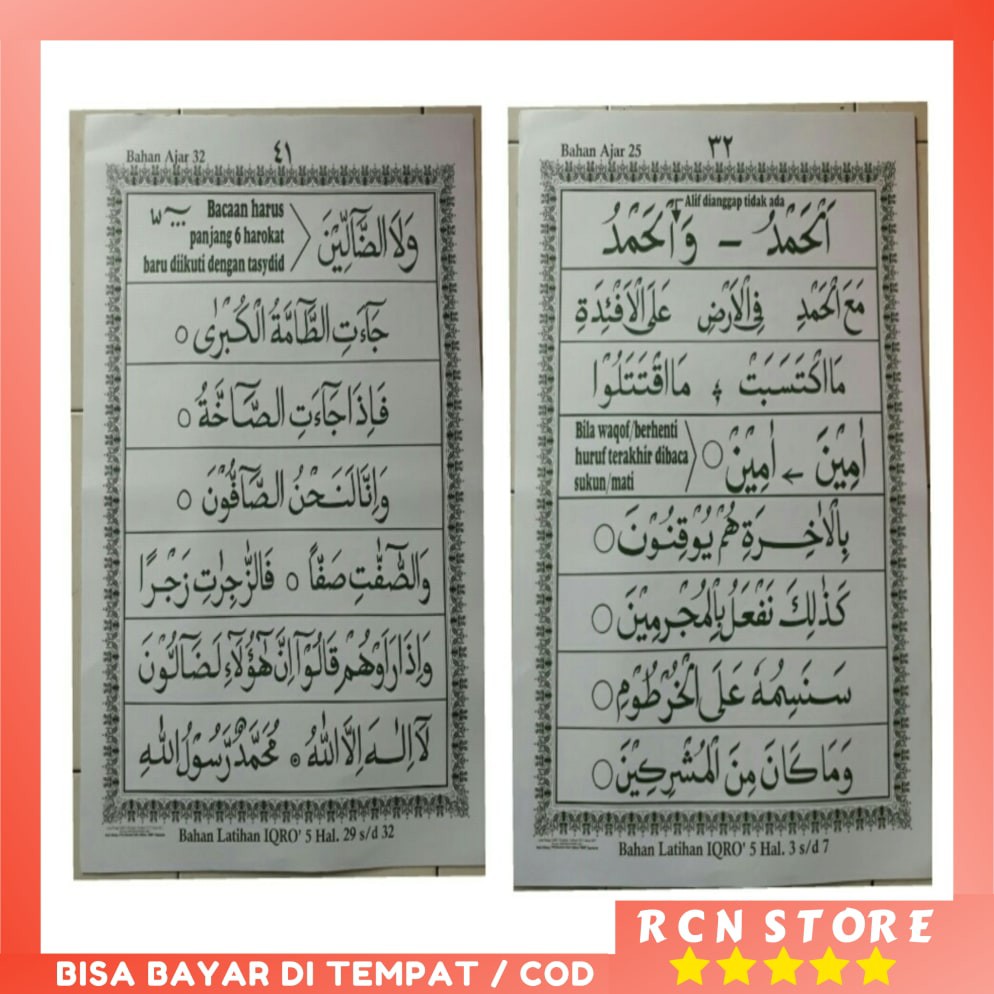 Bahan Ajar 32
٤١
وَلَا الضَّآلِّيْنَ
Bacaan harus
panjang 6 harokat
baru diikuti dengan tasydid
جَآءَتِ الطَّآمَّةُ الْكُبْرٰى ○
فَاِذَا جَآءَتِ الصَّآخَّةُ ○
وَاِنَّا لَنَحْنُ الصَّآفُّوْنَ ○
وَالصّٰٓفّٰتِ صَفًّا ○ فَالزّٰجِرٰتِ زَجْرًا
وَاِذَا رَاَوْهُمْ قَالُوْٓا اِنَّ هٰٓؤُلَآءِ لَضَآلُّوْنَ
لَآ اِلٰـهَ اِلَّا اللّٰهُ ۞ مُحَمَّدٌ رَّسُوْلُ اللّٰهِ
Bahan Latihan IQRO' 5 Hal. 29 s/d 32
Bahan Ajar 25
٣٢
Alif dianggap tidak ada
اَلْحَمْدُ – وَالْحَمْدُ
مَعَ الْحَمْدِ فِى الْاَرْضِ عَلَى الْاَفْئِدَةِ
مَا اكْتَسَبَتْ ، مَا اقْتَتَلُوْا
اٰمِيْنَ ← اٰمِيْنْ ○
Bila waqof/berhenti
huruf terakhir dibaca
sukun/mati
بِالْاٰخِرَةِ هُمْ يُوْقِنُوْنَ ○
كَذٰلِكَ نَفْعَلُ بِالْمُجْرِمِيْنَ ○
سَنَسِمُهٗ عَلَى الْخُرْطُوْمِ ○
وَمَا كَانَ مِنَ الْمُشْرِكِيْنَ ○
Bahan Latihan IQRO' 5 Hal. 3 s/d 7
RCN STORE
BISA BAYAR DI TEMPAT / COD